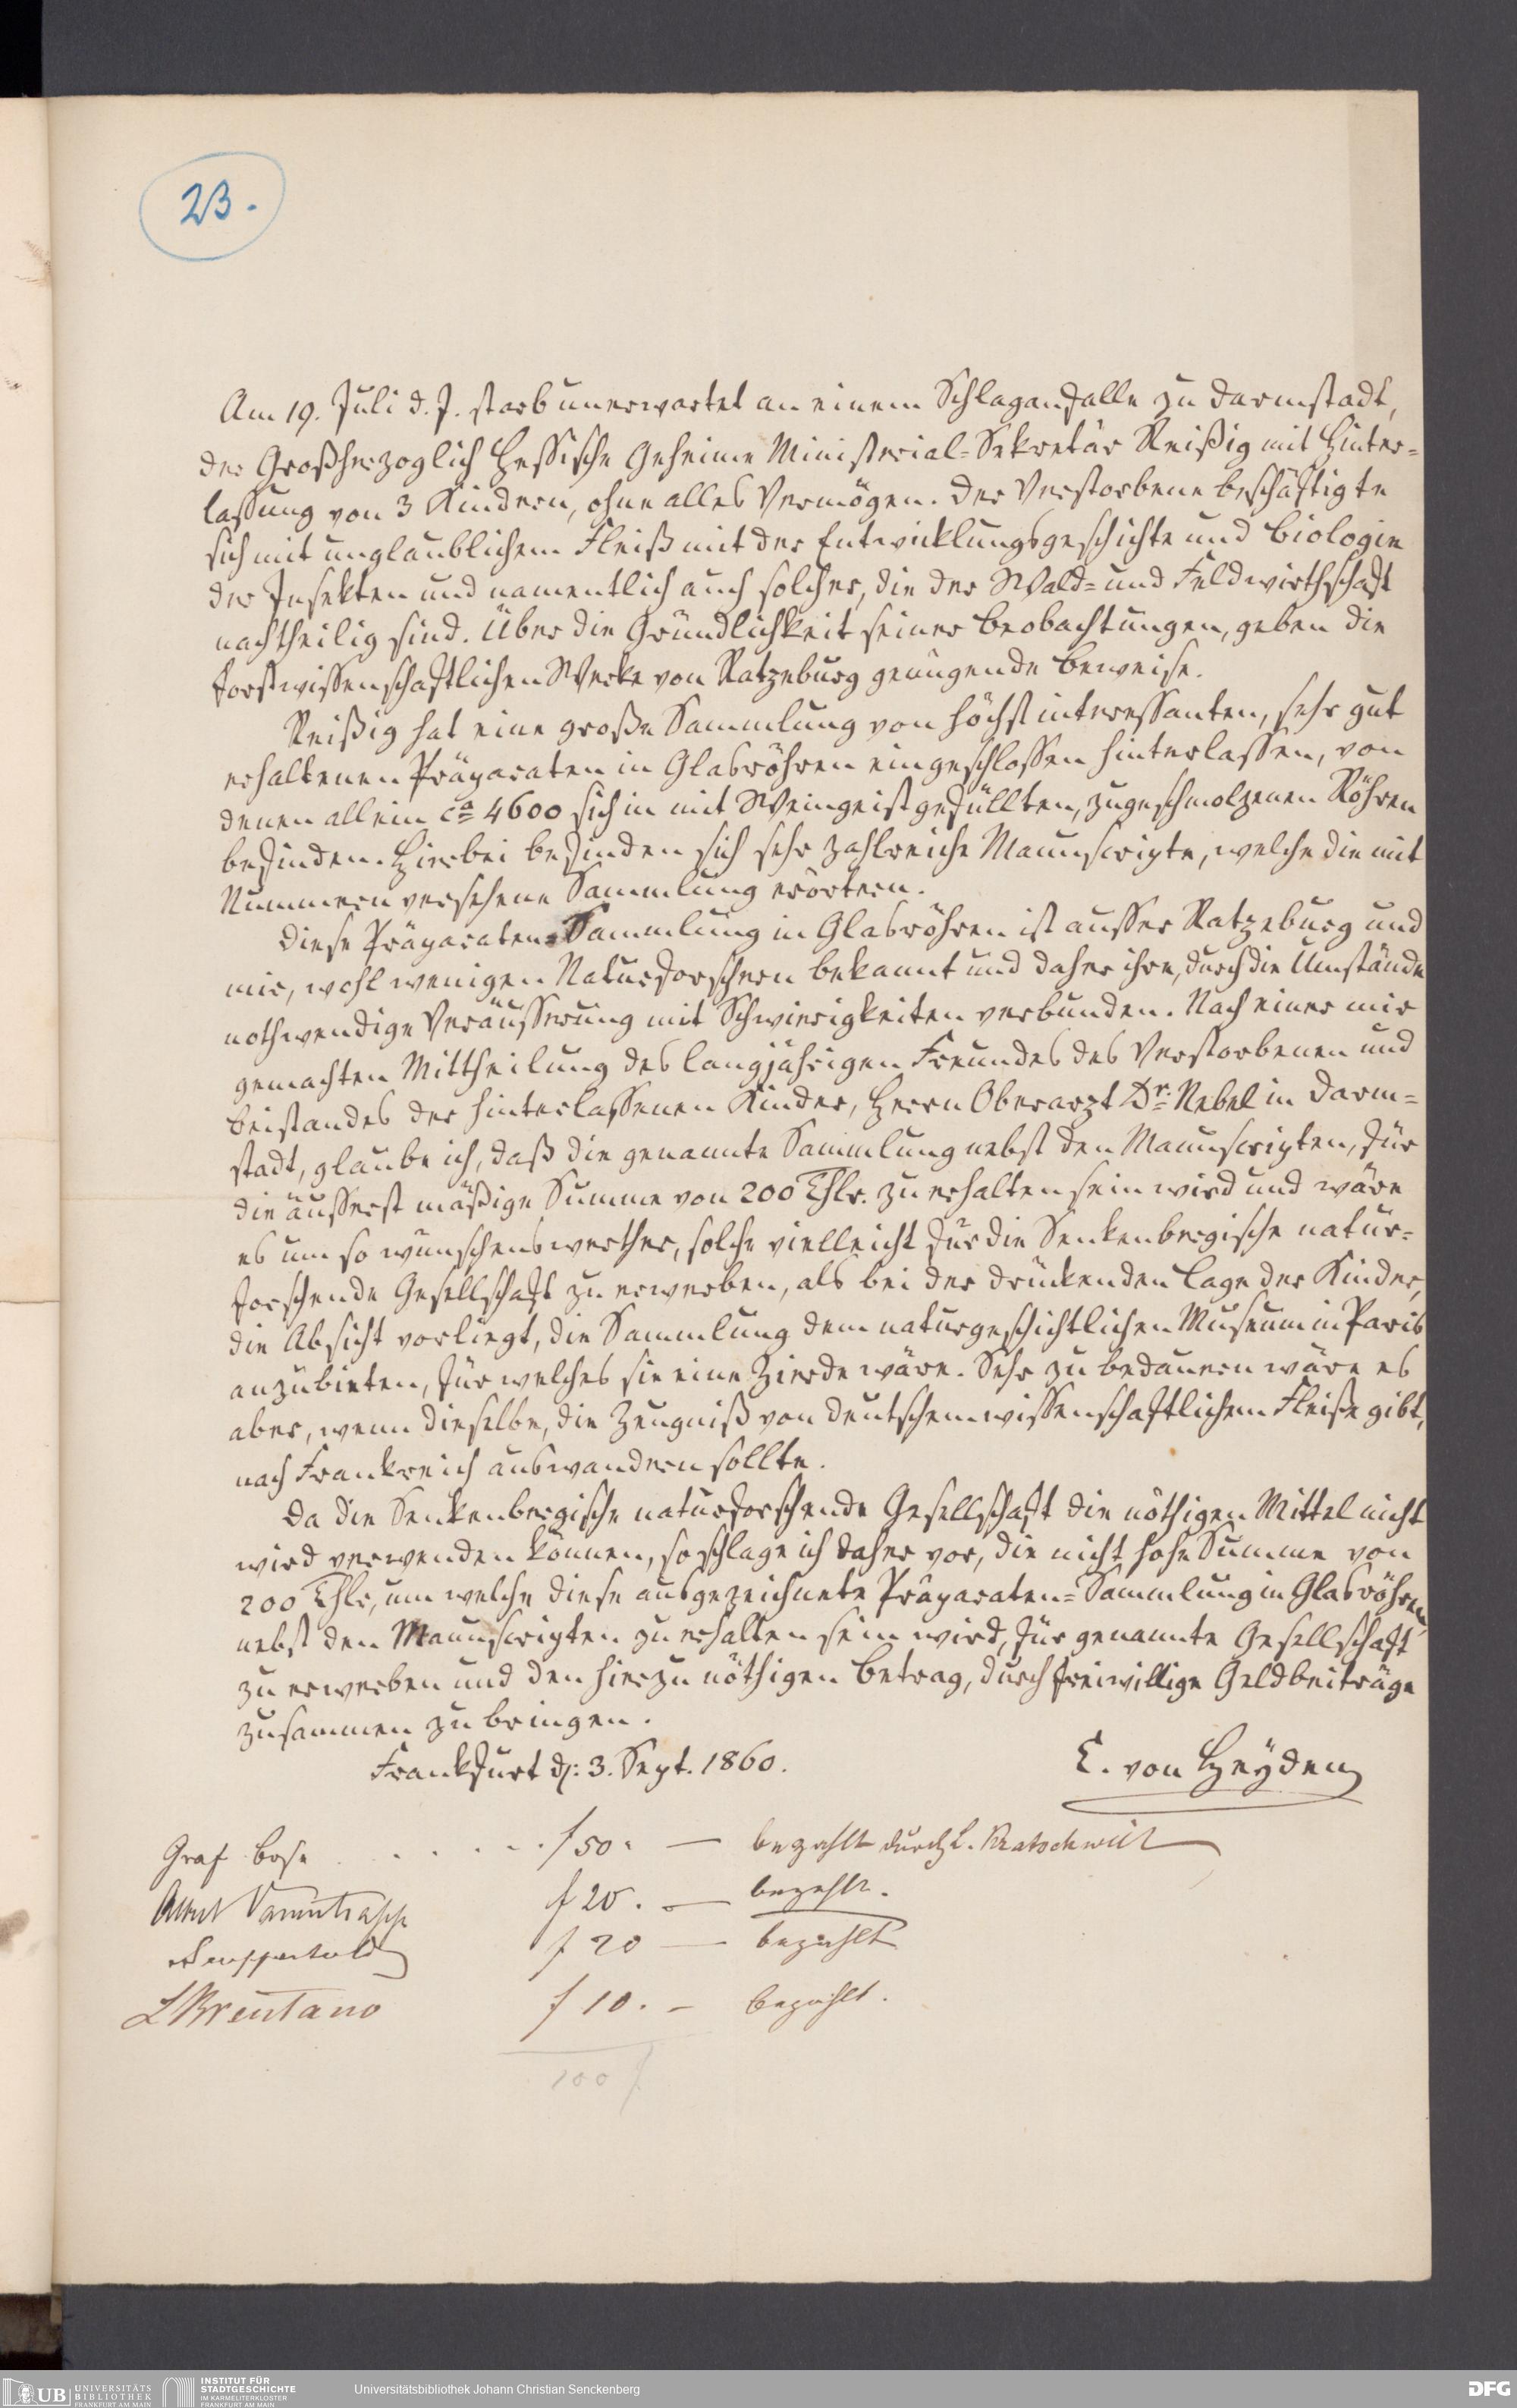 23.
Am 19. Juli d. J. starb unerwartet an einem Schlaganfalle zu Darmstadt,
der Großherzoglich Hessische Geheime Ministerial-Sekretär Reißig mit Hinter=
lassung von 3 Kindern, ohne alles Vermögen. Der Verstorbene beschäftigte
sich mit unglaublichem Fleiß mit der Entwicklungsgeschichte und Biologie
der Insekten und namentlich auch solcher, die der Wald= und Feldwirthschaft
nachtheilig sind. Über die Gründlichkeit seiner Beobachtungen, geben die
forstwissenschaftlichen Werke von Ratzeburg genügende Beweise.
Reißig hat eine große Sammlung von höchst interessanten, sehr gut
erhaltenen Präparaten in Glasröhren eingeschlossen hinterlassen, von
denen allein ca 4600 sich in mit Weingeist gefüllten, zugeschmolzenen Röhren
befinden. Hierbei befinden sich sehr zahlreiche Manuscripte, welche die mit
Nummern versehene Sammlung erörtern.
Diese Präparaten=Sammlung in Glasröhren ist ausser Ratzeburg und
mir, wohl wenigen Naturforschern bekannt und daher ihre, durch die Umstände
nothwendige Veräusserung mit Schwierigkeiten verbunden. Nach einer mir
gemachten Mittheilung des langjährigen Freundes des Verstorbenen und
Beistandes der hinterlassenen Kinder, Herrn Oberarzt Dr. Nebel in Darm=
stadt, glaube ich, daß die genannte Sammlung nebst den Manuscripten, für
die äusserst mäßige Summe von 200 Thlr. zu erhalten sein wird und wäre
es um so wünschenswerther, solche vielleicht für die Senkenbergische natur=
forschende Gesellschaft zu erwerben, als bei der drückenden Lage der Kinder,
die Absicht vorliegt, die Sammlung dem naturgeschichtlichen Museum in Paris
anzubieten, für welches sie eine Zierde wäre. Sehr zu bedauern wäre es
aber, wenn dieselbe, die Zeugniß von deutschem wissenschaftlichem Fleiße gibt,
nach Frankreich auswandern sollte.
Da die Senkenbergische naturforschende Gesellschaft die nöthigen Mittel nicht
wird verwenden können, so schlage ich daher vor, die nicht hohe Summe von
200 Thlr, um welche diese ausgezeichnete Präparaten=Sammlung in Glasröhren,
nebst den Manuscripten zu erhalten sein wird, für genannte Gesellschaft
zu erwerben und den hierzu nöthigen Betrag, durch freiwillige Geldbeiträge
zusammen zu bringen.
Frankfurt d: 3. Sept. 1860. C. von Heyden
Graf Bose . . . . . f 50. — bezahlt durch L.
Varrentrapp f 20. — bezahlt.
f 20 — bezahlt
L Brentano f 10. — bezahlt.
100 f
UB UNIVERSITÄTS
BIBLIOTHEK
FRANKFURT AM MAIN
INSTITUT FÜR
STADTGESCHICHTE
IM KARMELITERKLOSTER
FRANKFURT AM MAIN
Universitätsbibliothek Johann Christian Senckenberg
DFG